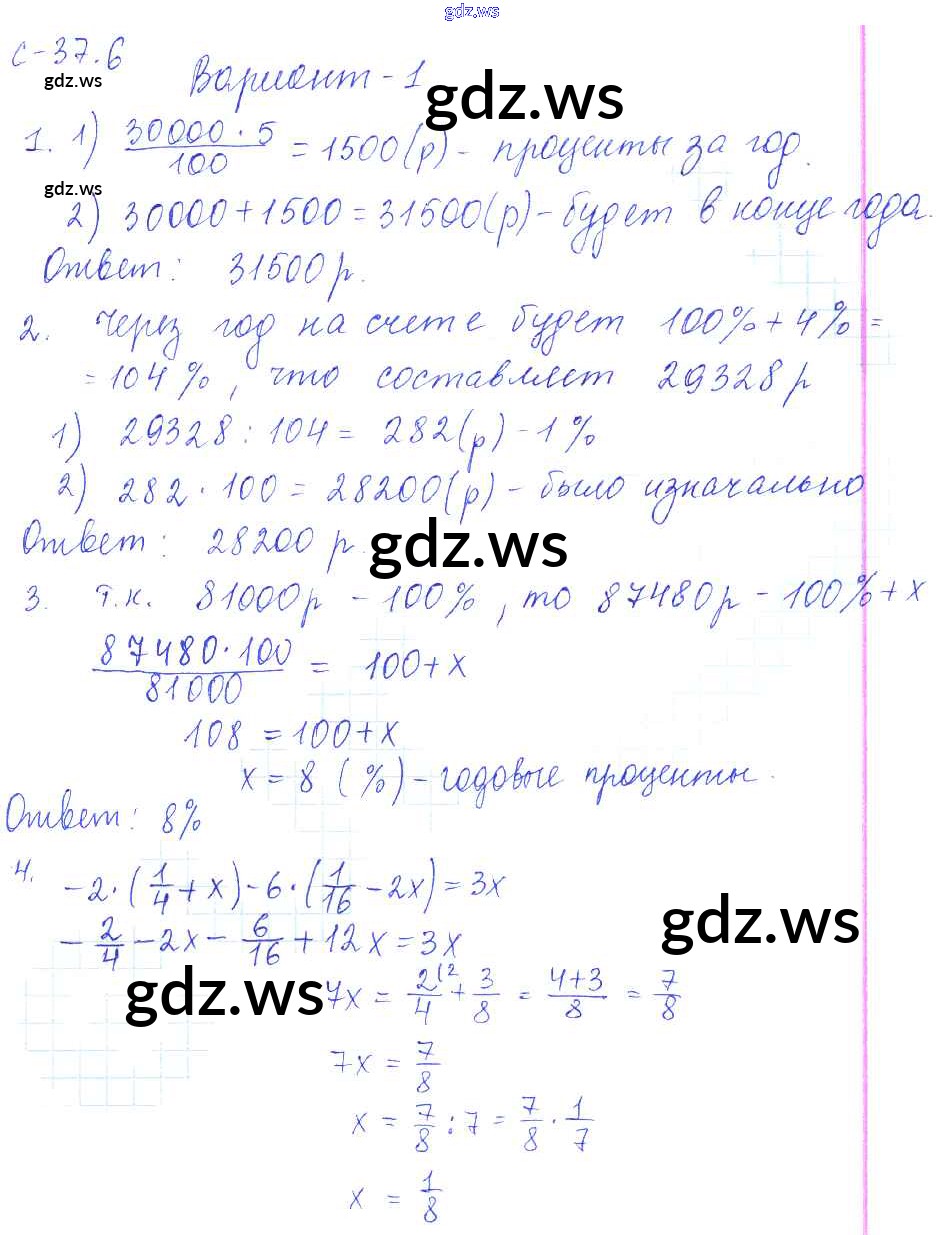 gdz.ws
С-37.6
gdz.ws
Вариант-1
gdz.ws
1. 1) 30000·5/100 = 1500(р) - проценты за год.
gdz.ws
2) 30000+1500=31500(р)-будет в конце года.
Ответ: 31500 р.
2. Через год на счете будет 100%+4%=
=104%, что составляет 29328 р
1) 29328:104= 282(р)-1%
2) 282·100=28200(р)-было изначально
Ответ: 28200 р.
gdz.ws
3. т.к. 81000р - 100%, то 87480р - 100%+x
87480·100/81000 = 100+x
108 = 100+x
x = 8 (%)-годовые проценты.
Ответ: 8%
4. -2·(1/4+x)-6·(1/16-2x)=3x
gdz.ws
-2/4-2x-6/16+12x=3x
gdz.ws
7x = 2(2/4+3/8 = 4+3/8 = 7/8
7x = 7/8
x = 7/8:7=7/8·1/7
x = 1/8